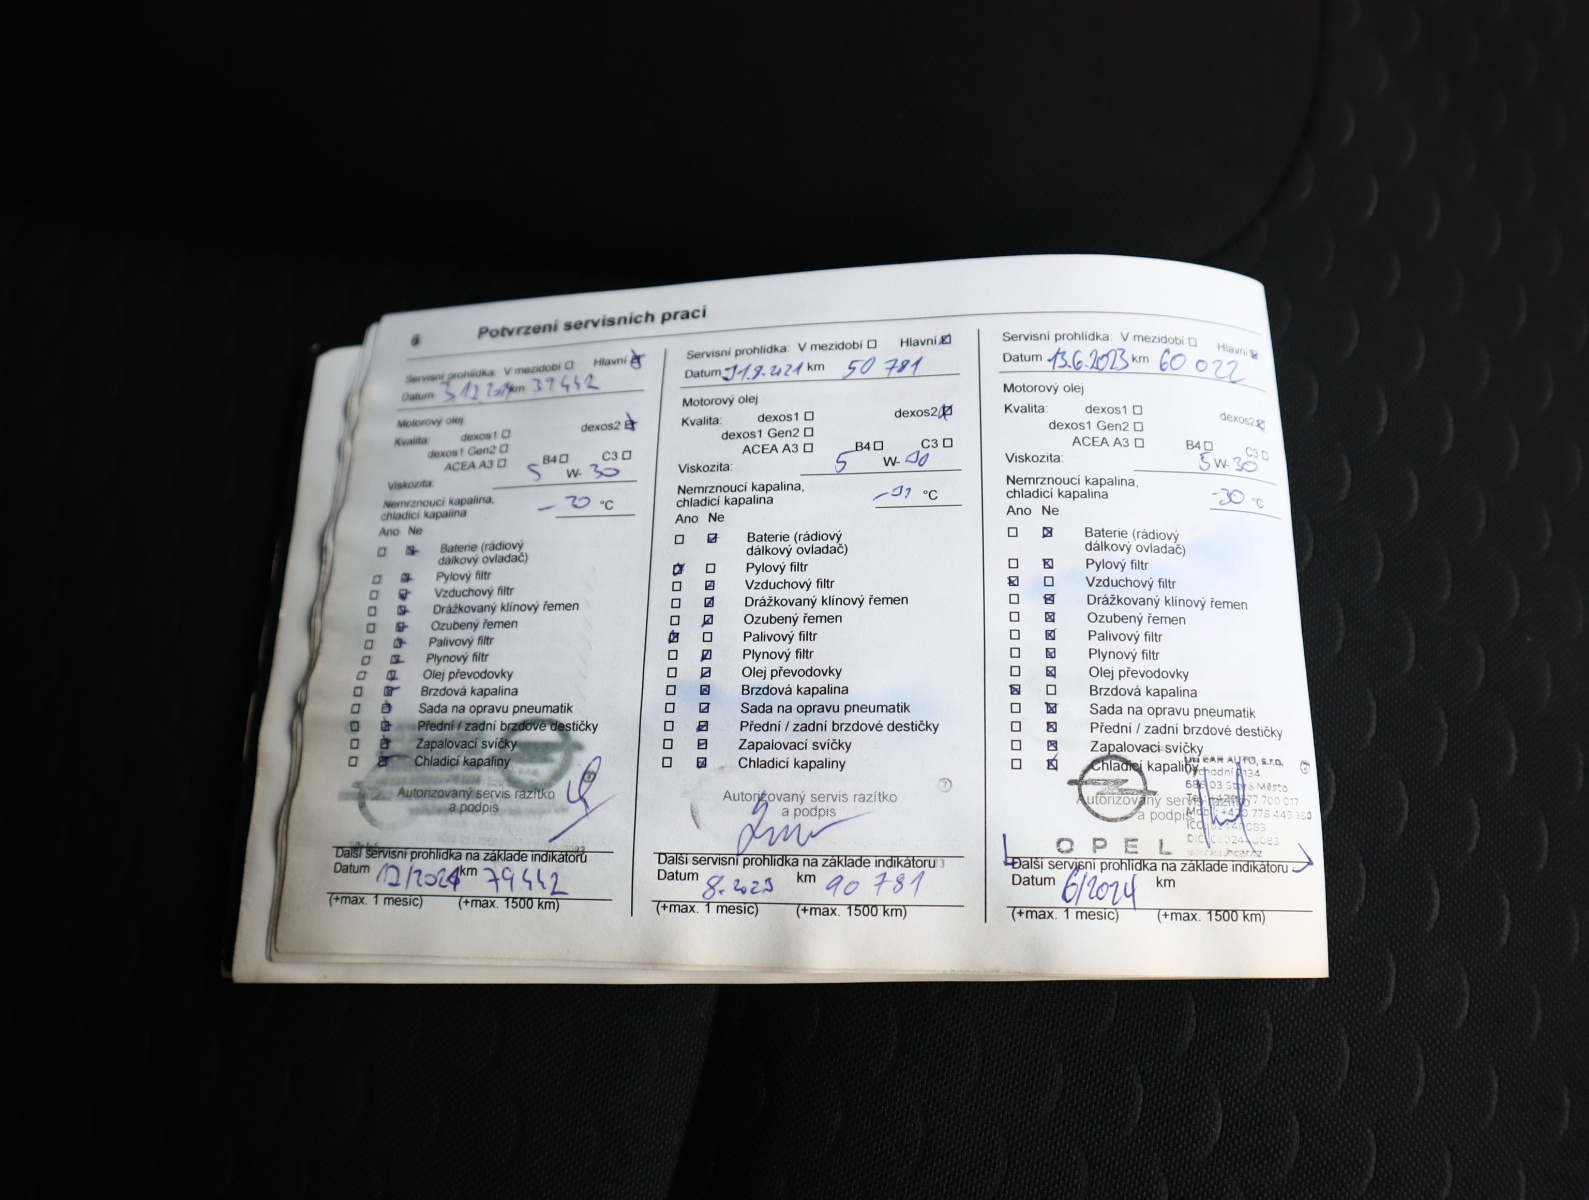 6 Potvrzení servisních prací
Servisní prohlídka: V mezidobí Hlavní
Datum km
Motorový olej
Kvalita: dexos1 dexos2
dexos1 Gen2
ACEA A3 B4 C3
Viskozita: 5 W-30
Nemrznoucí kapalina,
chladicí kapalina °C
Ano Ne
Baterie (rádiový
dálkový ovladač)
Pylový filtr
Vzduchový filtr
Drážkovaný klínový řemen
Ozubený řemen
Palivový filtr
Plynový filtr
Olej převodovky
Brzdová kapalina
Sada na opravu pneumatik
Přední / zadní brzdové destičky
Zapalovací svíčky
Chladicí kapaliny
Autorizovaný servis razítko
a podpis
Další servisní prohlídka na základe indikátorů
Datum km 79442
(+max. 1 mesíc) (+max. 1500 km)
Servisní prohlídka: V mezidobí Hlavní
Datum km 50 781
Motorový olej
Kvalita: dexos1 dexos2
dexos1 Gen2
ACEA A3 B4 C3
Viskozita: 5 W-
Nemrznoucí kapalina,
chladicí kapalina °C
Ano Ne
Baterie (rádiový
dálkový ovladač)
Pylový filtr
Vzduchový filtr
Drážkovaný klínový řemen
Ozubený řemen
Palivový filtr
Plynový filtr
Olej převodovky
Brzdová kapalina
Sada na opravu pneumatik
Přední / zadní brzdové destičky
Zapalovací svíčky
Chladicí kapaliny
Autorizovaný servis razítko
a podpis
Další servisní prohlídka na základe indikátoru
Datum km 90 781
(+max. 1 mesíc) (+max. 1500 km)
Servisní prohlídka: V mezidobí Hlavní
Datum 13.6.2023 km 60 022
Motorový olej
Kvalita: dexos1 dexos2
dexos1 Gen2
ACEA A3 B4 C3
Viskozita: 5 W-30
Nemrznoucí kapalina,
chladicí kapalina -30 °C
Ano Ne
Baterie (rádiový
dálkový ovladač)
Pylový filtr
Vzduchový filtr
Drážkovaný klínový řemen
Ozubený řemen
Palivový filtr
Plynový filtr
Olej převodovky
Brzdová kapalina
Sada na opravu pneumatik
Přední / zadní brzdové destičky
Zapalovací svíčky
Chladicí kapaliny
CAR AUTO, s.r.o.
Autorizovaný servis razítko
a podpis
OPEL
Další servisní prohlídka na základe indikátoru
Datum 6/2024 km
(+max. 1 mesíc) (+max. 1500 km)